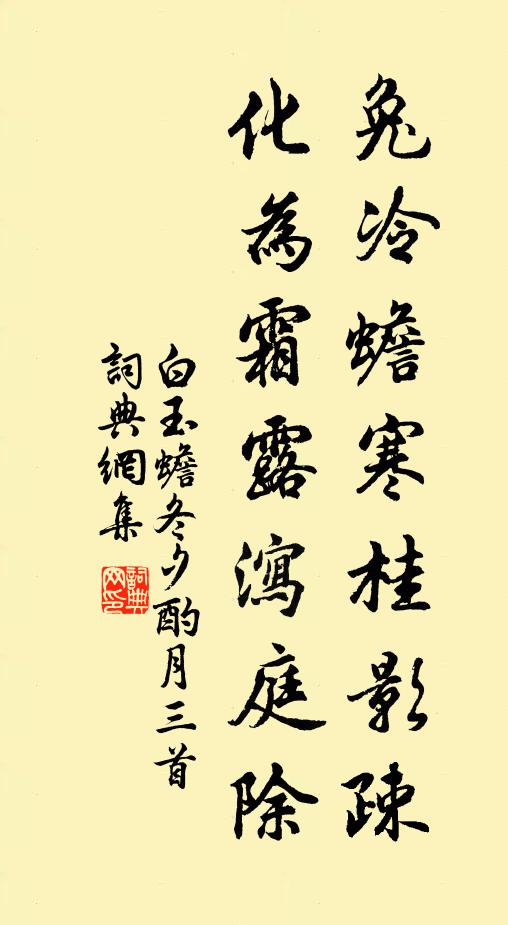 兔冷蟾寒桂影疎
化為霜露瀉庭除
白玉蟾冬夕酌月三首
詞典網集
詞典
网印